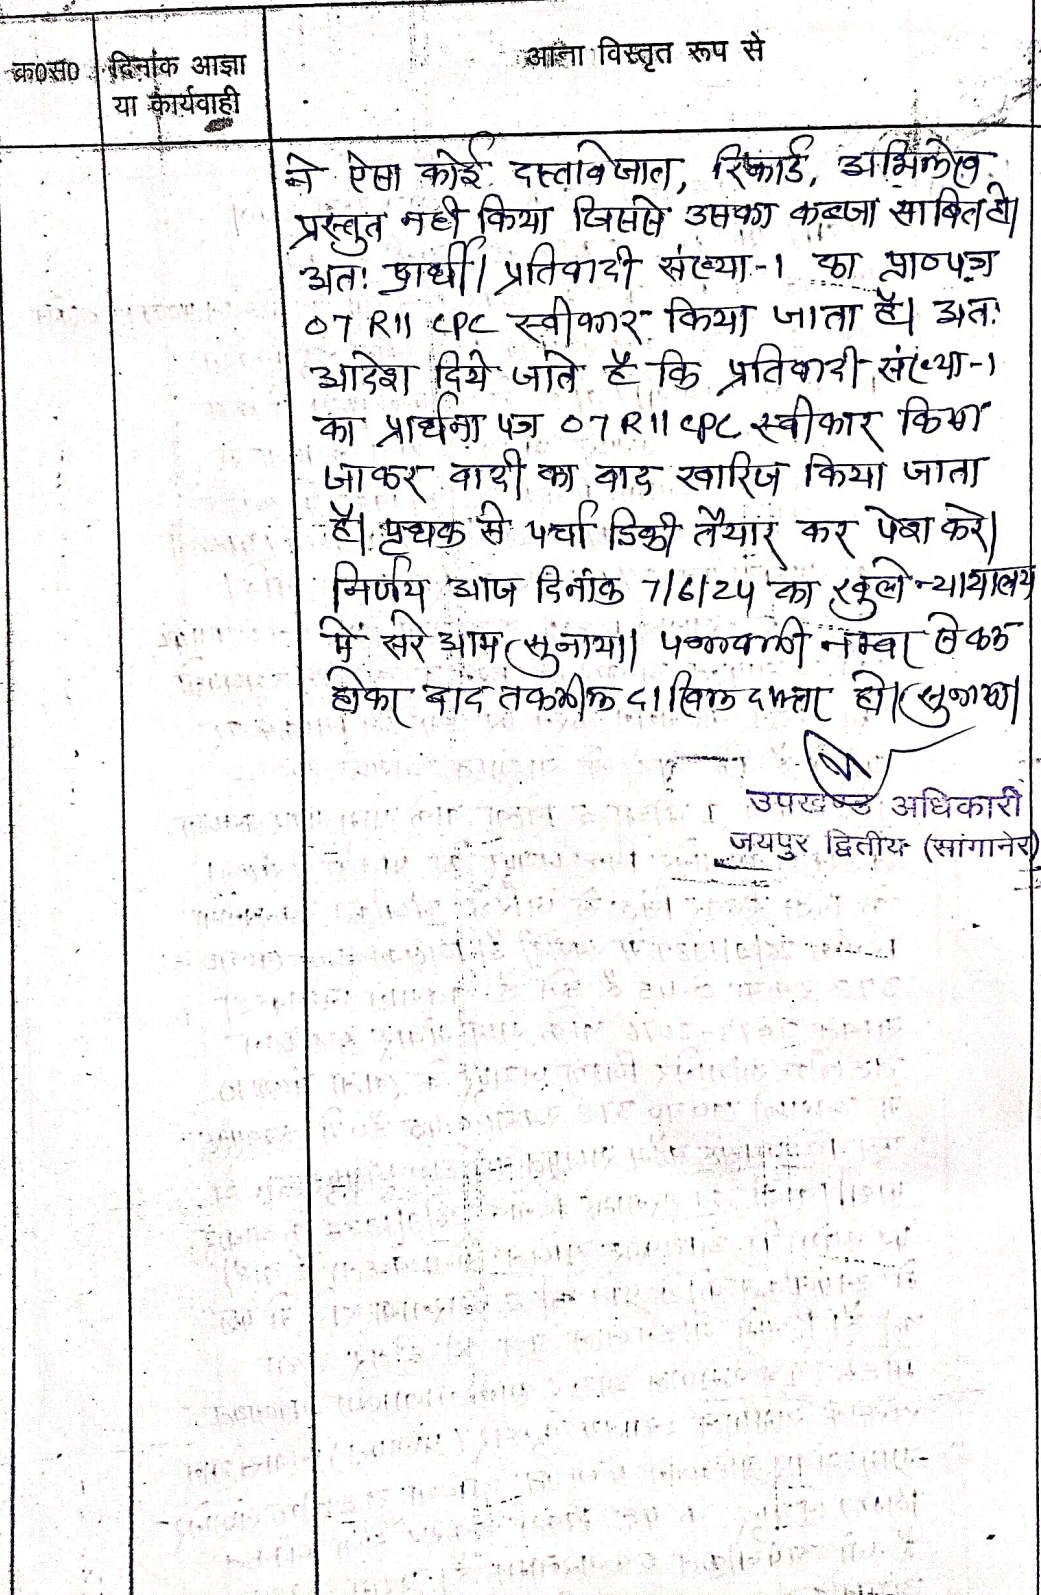 क्र0स0 दिनांक आज्ञा
या कार्यवाही
आज्ञा विस्तृत रूप से
ने ऐसा कोई दस्तावेजात, रिकार्ड, अभिलेख
प्रस्तुत नही किया जिससे उसका कब्जा साबित हो।
अतः प्रार्थी/ प्रतिवादी संख्या-1 का प्रा०पत्र
07 R11 CPC स्वीकार किया जाता है। अतः
आदेश दिये जाते है कि प्रतिवादी संख्या-1
का प्रार्थना पत्र 07 R 11 CPC स्वीकार किया
जाकर वादी का वाद खारिज किया जाता
है। पृथक से पर्चा डिक्री तैयार कर पेश करे।
निर्णय आज दिनांक 7/6/24 को खुले न्यायालय
में सरे आम सुनाया। पत्रावली नम्बर से कम
होकर बाद तकमील दाखिल दफ्तर हो।
उपखण्ड अधिकारी
जयपुर द्वितीय (सांगानेर)